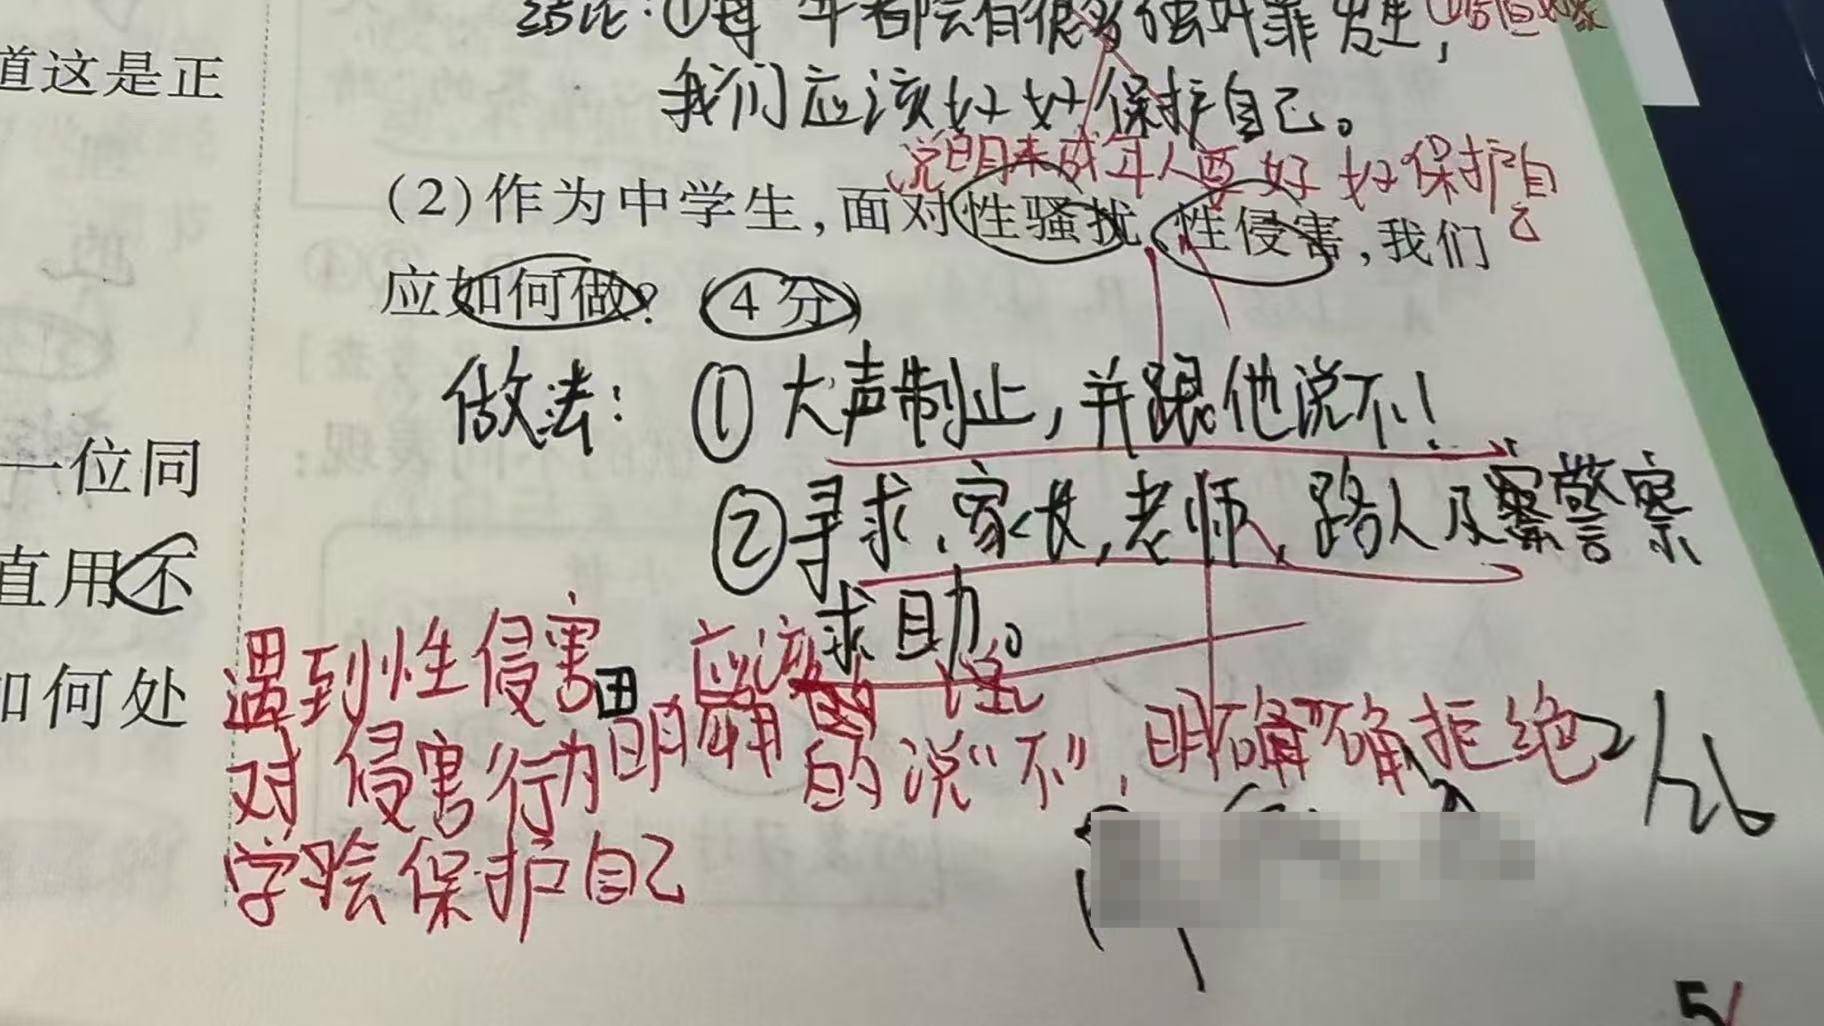 结论:①每年都会有很多强奸罪发生,
我们应该好好保护自己。
说明未成年人要好好保护自
己
(2)作为中学生,面对性骚扰、性侵害,我们
应如何做?(4分)
做法:①大声制止,并跟他说不!
②寻求、家长,老师、路人及警察
求助。
遇到性侵害 应该
对侵害行为明确的说“不”,明确拒绝
学会保护自己
道这是正
一位同
直用不
如何处
5